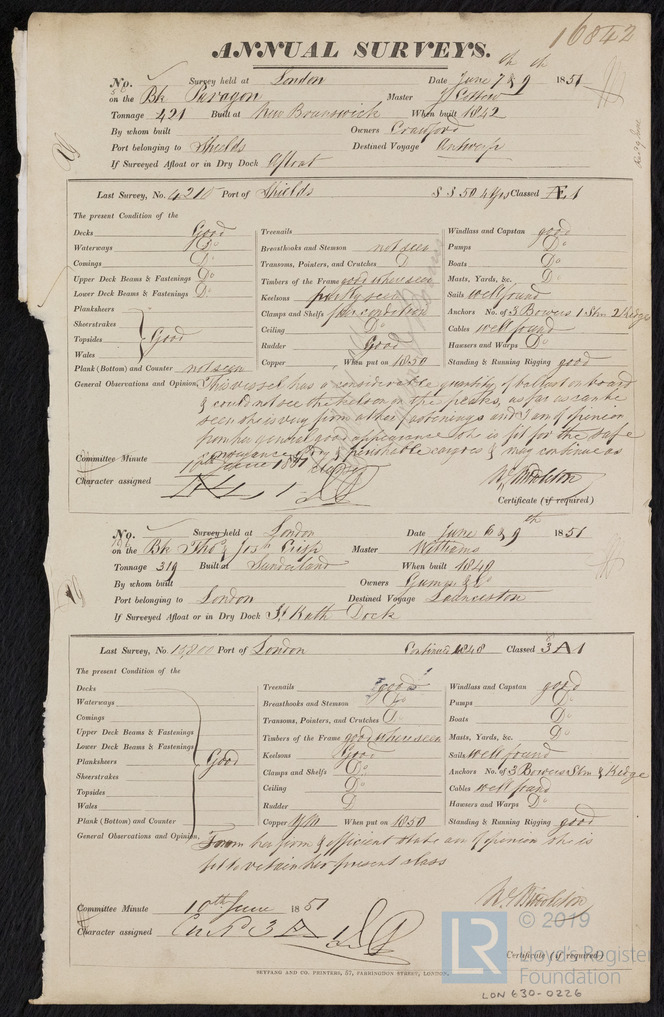 16842
ANNUAL SURVEYS.
No. Survey held at London Date June 7th & 9th 1851
on the Bk Paragon Master
Tonnage 421 Built at New Brunswick When built 1842
By whom built Owners Crawford
Port belonging to Shields Destined Voyage Antwerp
If Surveyed Afloat or in Dry Dock Afloat
Last Survey, No. 4210 Port of Shields S S 50 4 Yrs Classed Æ1
The present Condition of the
Decks Good
Waterways Do
Comings Do
Upper Deck Beams & Fastenings Do
Lower Deck Beams & Fastenings Do
Planksheers
Sheerstrakes
Topsides Good
Wales
Plank (Bottom) and Counter not seen
Treenails
Breasthooks and Stemson not seen
Transoms, Pointers, and Crutches Do
Timbers of the Frame good when seen
Keelsons partly seen
Clamps and Shelfs fair condition
Ceiling Do
Rudder Good
Copper When put on 1850
Windlass and Capstan good
Pumps Do
Boats Do
Masts, Yards, &c. Do
Sails well found
Anchors No. of 3 Bowers 1 Stm 2 Kedge
Cables well found
Hawsers and Warps Do
Standing & Running Rigging good
General Observations and Opinion, This vessel has a considerable quantity of ballast on board
& could not see the kelson or the peaks, as far as can be
seen she is very firm at her fastenings and I am of opinion
from her general good appearance she is fit for the safe
conveyance of dry & perishable cargoes & may continue as
Committee Minute 10th June 1851
Character assigned Æ 1
Certificate (if required)
No. Survey held at London Date June 6 & 9th 1851
on the Bk Thos & Josh Crisp Master Williams
Tonnage 319 Built at Sunderland When built 1840
By whom built Owners
Port belonging to London Destined Voyage Launceston
If Surveyed Afloat or in Dry Dock St Kath Dock
Last Survey, No. 13800 Port of London Continued 1848 Classed 3 A1
The present Condition of the
Decks
Waterways
Comings
Upper Deck Beams & Fastenings
Lower Deck Beams & Fastenings
Planksheers Good
Sheerstrakes
Topsides
Wales
Plank (Bottom) and Counter
Treenails good
Breasthooks and Stemson Do
Transoms, Pointers, and Crutches Do
Timbers of the Frame good when seen
Keelsons Good
Clamps and Shelfs Do
Ceiling Do
Rudder Do
Copper When put on 1850
Windlass and Capstan good
Pumps Do
Boats Do
Masts, Yards, &c. Do
Sails well found
Anchors No. of 3 Bowers Stm & Kedge
Cables well found
Hawsers and Warps Do
Standing & Running Rigging good
General Observations and Opinion, From her firm & efficient state am of opinion she is
fit to retain her present class
Committee Minute 10th June 1851
Character assigned Contd 3 A 1
Certificate (if required)
SEYFANG AND CO. PRINTERS, 57, FARRINGDON STREET, LONDON.
LR © 2019
Lloyd's Register
Foundation
LON 630-0226